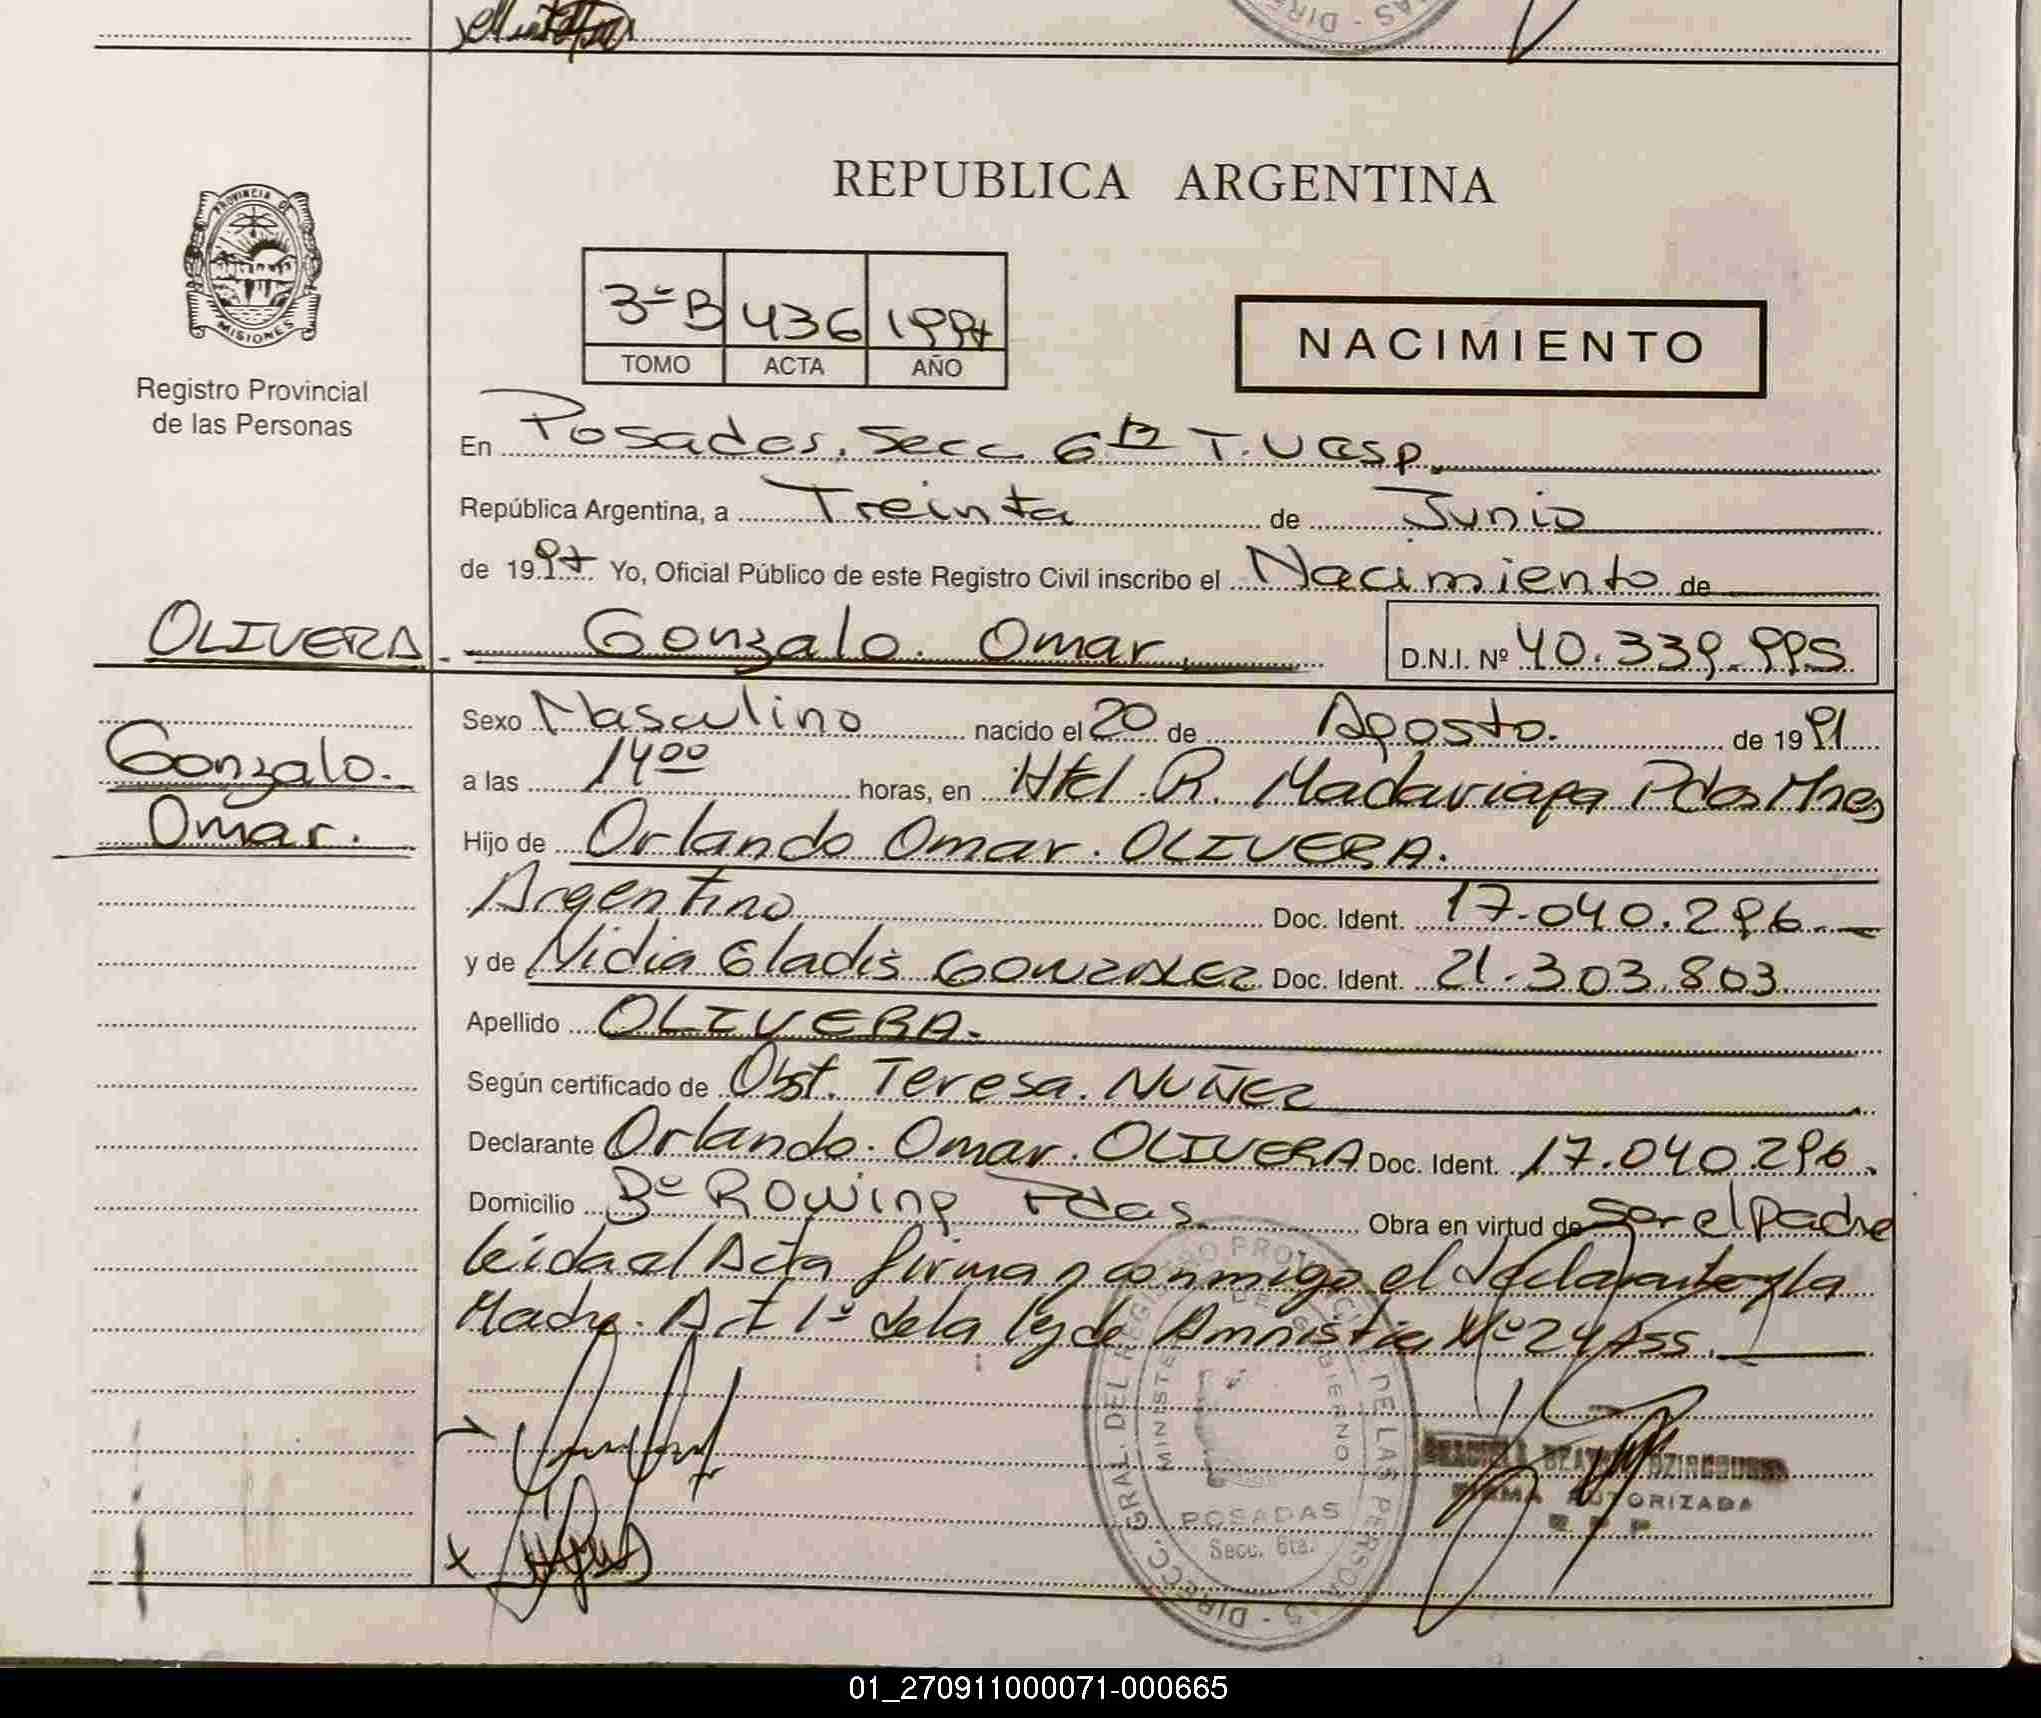 PROVINCIA DE
MISIONES
Registro Provincial
de las Personas
REPUBLICA ARGENTINA
3ºB 436 1997
TOMO ACTA AÑO
NACIMIENTO
En Posadas. Secc 6ta T. Vesp.
República Argentina, a Treinta de Junio
de 1997 Yo, Oficial Público de este Registro Civil inscribo el Nacimiento de
OLIVERA Gonzalo. Omar. D.N.I. Nº 40.339.995
Sexo Masculino nacido el 20 de Agosto. de 1991
Gonzalo.
Omar.
a las 14 00 horas, en R. Madariaga Pdas Mnes
Hijo de Orlando Omar. OLIVERA.
Argentino Doc. Ident. 17.040.296.
y de Nidia Gladis GONZALEZ Doc. Ident. 21.303.803
Apellido OLIVERA.
Según certificado de Obst. Teresa. NUÑEZ
Declarante Orlando. Omar. OLIVERA Doc. Ident. 17.040.296.
Domicilio Bº Rowing Pdas. Obra en virtud de ser el Padre
leida el Acta firman conmigo el declarante y la
Madre. Art 1º de la ley de Amnistia Nº 24.755.
DIRECC. GRAL. DEL REGISTRO PROVINCIAL DE LAS PERSONAS
MINISTERIO DE GOBIERNO
POSADAS
Secc. 6ta.
FIRMA AUTORIZADA
01_270911000071-000665